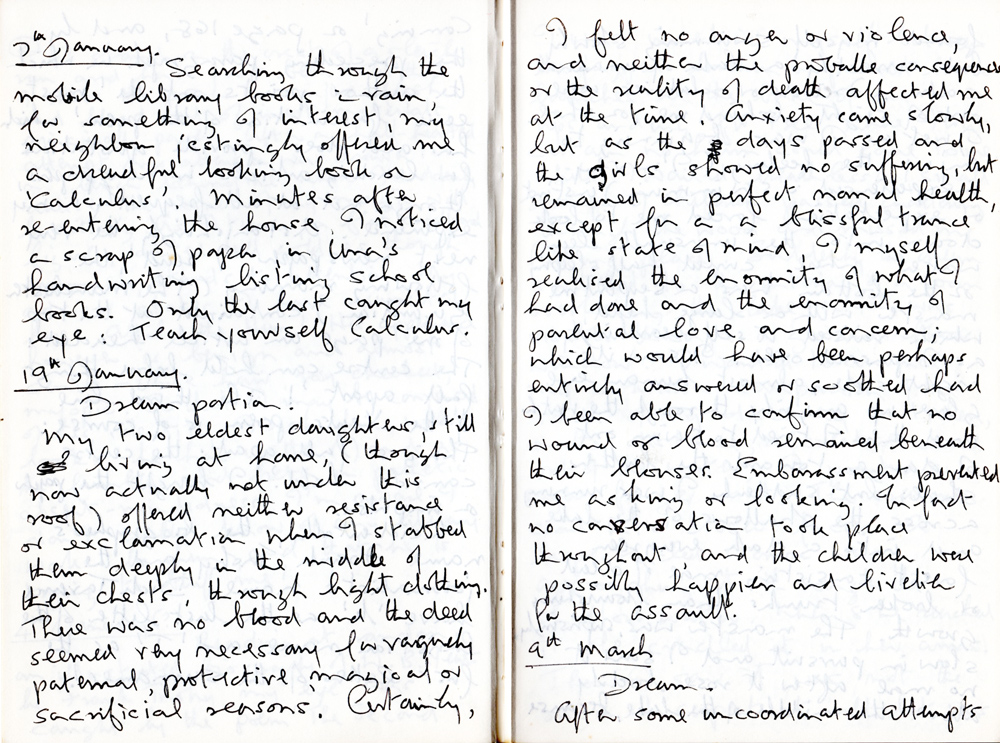 7th January.
Searching through the
mobile library books, in rain,
for something of interest, my
neighbour jestingly offered me
a dreadful looking book on
'Calculus'. Minutes after
re-entering the house I noticed
a scrap of paper in Una's
handwriting listing school
books. Only the last caught my
eye: Teach yourself Calculus.
19th January.
Dream portion.
My two eldest daughters, still
living at home, (though
now actually not under this
roof) offered neither resistance
or exclamation when I stabbed
them deeply in the middle of
their chests, through light clothing.
There was no blood and the deed
seemed very necessary for vaguely
paternal, protective, magical or
sacrificial reasons. Certainly,
I felt no anger or violence,
and neither the probable consequence
or the reality of death affected me
at the time. Anxiety came slowly,
but as the days passed and
the girls showed no suffering, but
remained in perfect normal health,
except for a a blissful trance
like state of mind, I myself
realised the enormity of what I
had done and the enormity of
parental love and concern;
which would have been perhaps
entirely answered or soothed had
I been able to confirm that no
wound or blood remained beneath
their blouses. Embarassment prevented
me asking or looking. In fact
no conversation took place
throughout, and the children were
possibly happier and livelier
for the assault.
9th March
Dream.
After some uncoordinated attempts